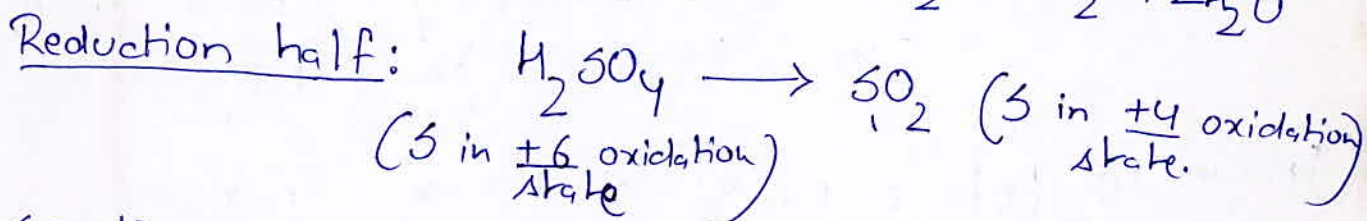 2 2 2O
Reduction half: H2SO4 ⟶ SO2 (S in +4 oxidation state.)
(S in +6 oxidation state)